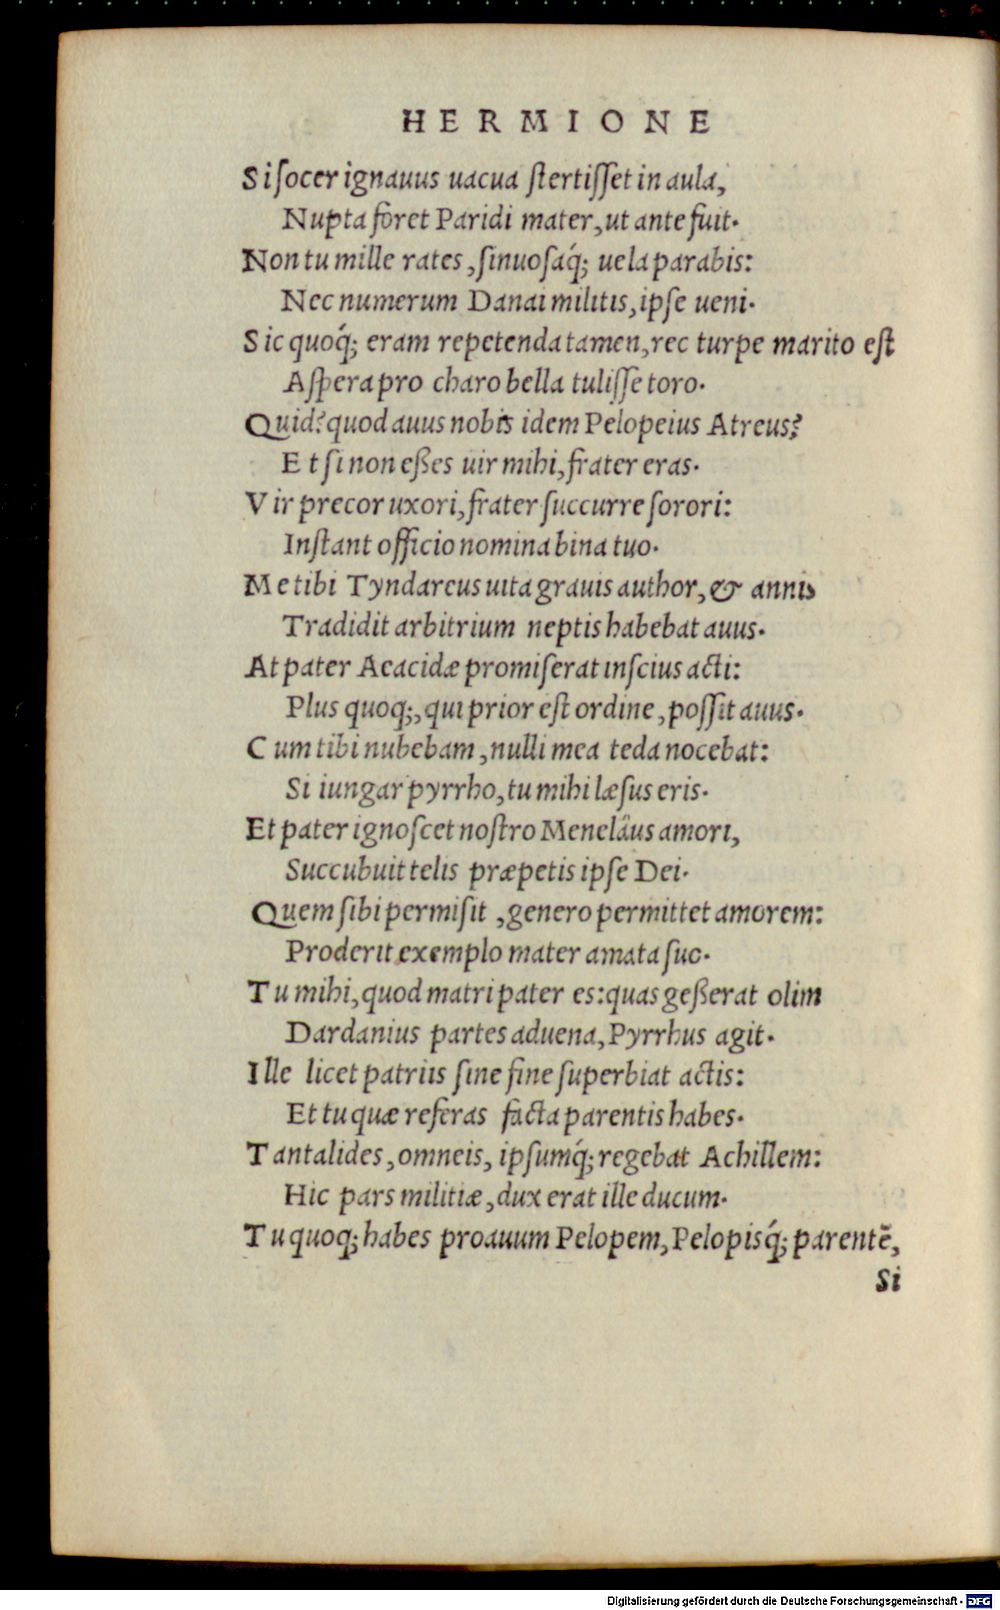 HERMIONE
Si socer ignauus uacua stertisset in aula,
Nupta foret Paridi mater, ut ante fuit.
Non tu mille rates, sinuosaq́; uela parabis:
Nec numerum Danai militis, ipse ueni.
Sic quoq́; eram repetenda tamen, rec turpe marito est
Aspera pro charo bella tulisse toro.
Quid? quod auus nobis idem Pelopeius Atreus?
Et si non eßes uir mihi, frater eras.
Vir precor uxori, frater succurre sorori:
Instant officio nomina bina tuo.
Me tibi Tyndareus uita grauis author, & annis
Tradidit arbitrium neptis habebat auus.
At pater Aeacidæ promiserat inscius acti:
Plus quoq;, qui prior est ordine, possit auus.
Cum tibi nubebam, nulli mea teda nocebat:
Si iungar pyrrho, tu mihi læsus eris.
Et pater ignoscet nostro Menelâus amori,
Succubuit telis præpetis ipse Dei.
Quem sibi permisit, genero permittet amorem:
Proderit exemplo mater amata suo.
Tu mihi, quod matri pater es: quas geßerat olim
Dardanius partes aduena, Pyrrhus agit.
Ille licet patriis sine fine superbiat actis:
Et tu quæ referas facta parentis habes.
Tantalides, omneis, ipsumq́; regebat Achillem:
Hic pars militiæ, dux erat ille ducum.
Tu quoq; habes proauum Pelopem, Pelopisq́; parentē,
Si
Digitalisierung gefördert durch die Deutsche Forschungsgemeinschaft - DFG